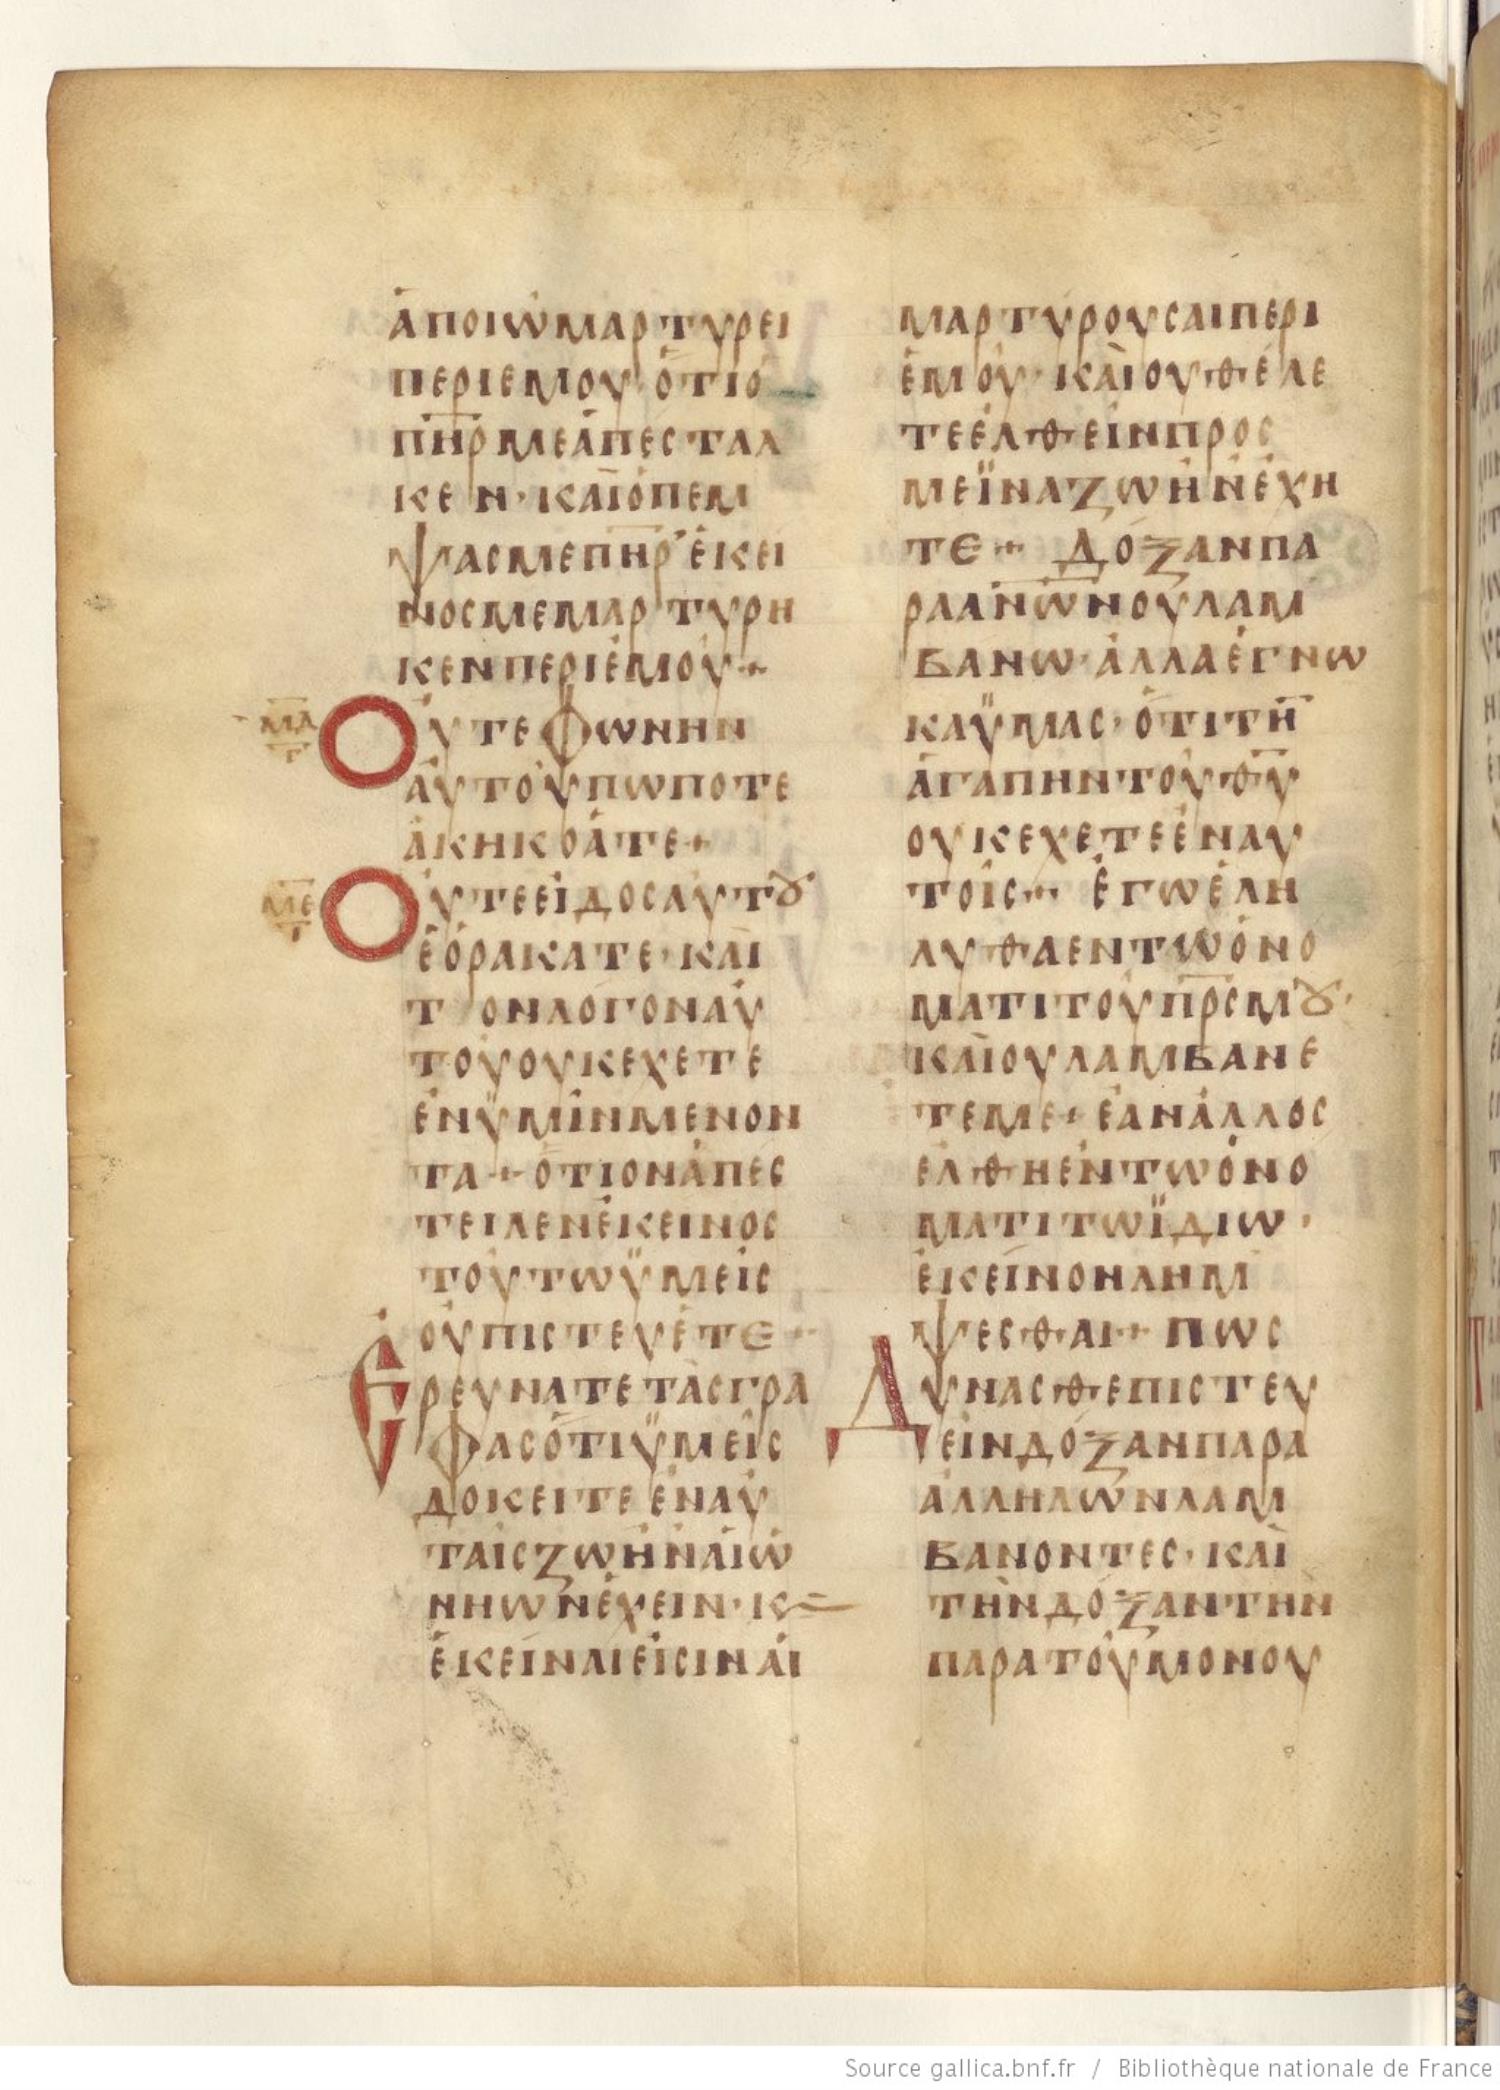 ἁ ποιῶ μαρτυρεῖ
περι ἐμοῦ· ὅτι ὁ
πη̅ρ με ἀπέσταλ
κεν· καὶ ὁ πέμ
ψας με πη̅ρ ἐκεῖ
νος μεμαρτύρη
κεν περὶ ἐμοῦ·
μδ
γ
Οὔτε φωνὴν
αὐτοῦ πώποτε
ἀκηκόατε·
με
γ
Οὔτε εἶδος αὐτȣ
ἑοράκατε· καὶ
τὸν λόγον αὐ
τοῦ οὐκ ἔχετε
ἐν ὑμῖν μένον
τα· ὅτι ὃν ἀπές
τειλεν ἐκεῖνος
τούτω ὑμεῖς
οὐ πιστεύετε·
Ἐρευνᾶτε τὰς γρα
φὰς ὅτι ὑμεῖς
δοκεῖτε ἐν αὐ
ταῖς ζωὴν αἰώ
νηων ἔχειν· κ
ἐκεῖναι εἰσὶν αἱ
μαρτυροῦσαι περὶ
ἐμοῦ· καὶ οὐ θέλε
τε ἐλθεῖν πρός
με ἵνα ζωὴν ἔχη
τε· Δόξαν πα
ρα ἀν̅ω̅ν οὐ λαμ
βάνω· ἀλλα ἔγνω
κα ὑμᾶς· ὅτι τὴ̅
ἀγάπην τοῦ θ̅υ̅
οὐκ ἔχετε ἐν αυ
τοῖς· ἐγὼ ἐλή
λυθα ἐν τῶ ὀνό
ματι τοῦ πρ̅ς μȣ·
καὶ οὐ λαμβάνε
τέ με· ἐὰν ἄλλος
ἔλθη ἐν τῶ ὀνό
ματι τῶ ἰδίω·
ἐκεῖνον λήμ
ψεσθαι· πῶς
Δύνασθε πιστεύ
ειν δόξαν παρα
ἀλλήλων λαμ
βάνοντες· καὶ
τὴν δόξαν τὴν
παρα τοῦ μόνου
Source gallica.bnf.fr / Bibliothèque nationale de France